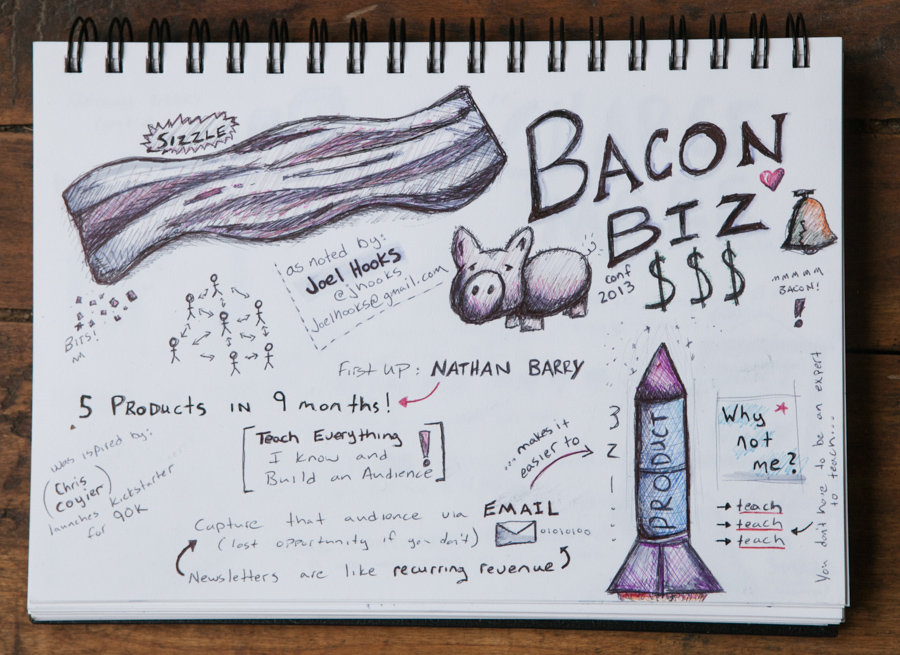 SIZZLE
BACON
BIZ
conf
2013
$$$
as noted by:
Joel Hooks
@jhooks
joelhooks@gmail.com
mmmmm
BACON!
!
Bits!
First up: NATHAN BARRY
5 PRODUCTS IN 9 months!
was ispired by:
(Chris
Coyier)
launches kickstarter
for 90K
[Teach Everything !
I know and
Build an Audience]
...makes it
easier to
Capture that audience via EMAIL
(lost opportunity if you don't)
Newsletters are like recurring revenue
01010100
3
2
1
PRODUCT
Why
not
me?
→ teach
→ teach
→ teach
You dont have to be an expert
to teach...